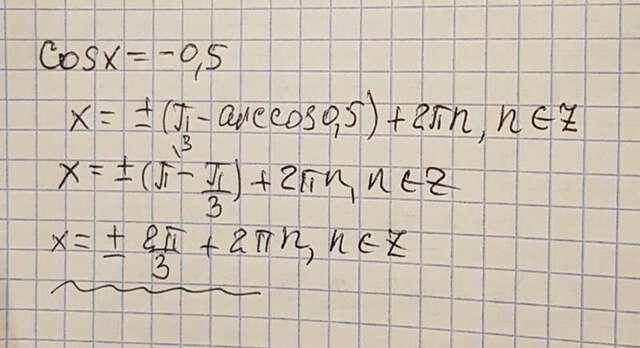 cosx = -0,5
x = ± (π - arccos0,5) + 2πn, n ∈ Z
3
x = ± (π - π/3) + 2πn, n ∈ Z
x = ± 2π/3 + 2πn, n ∈ Z